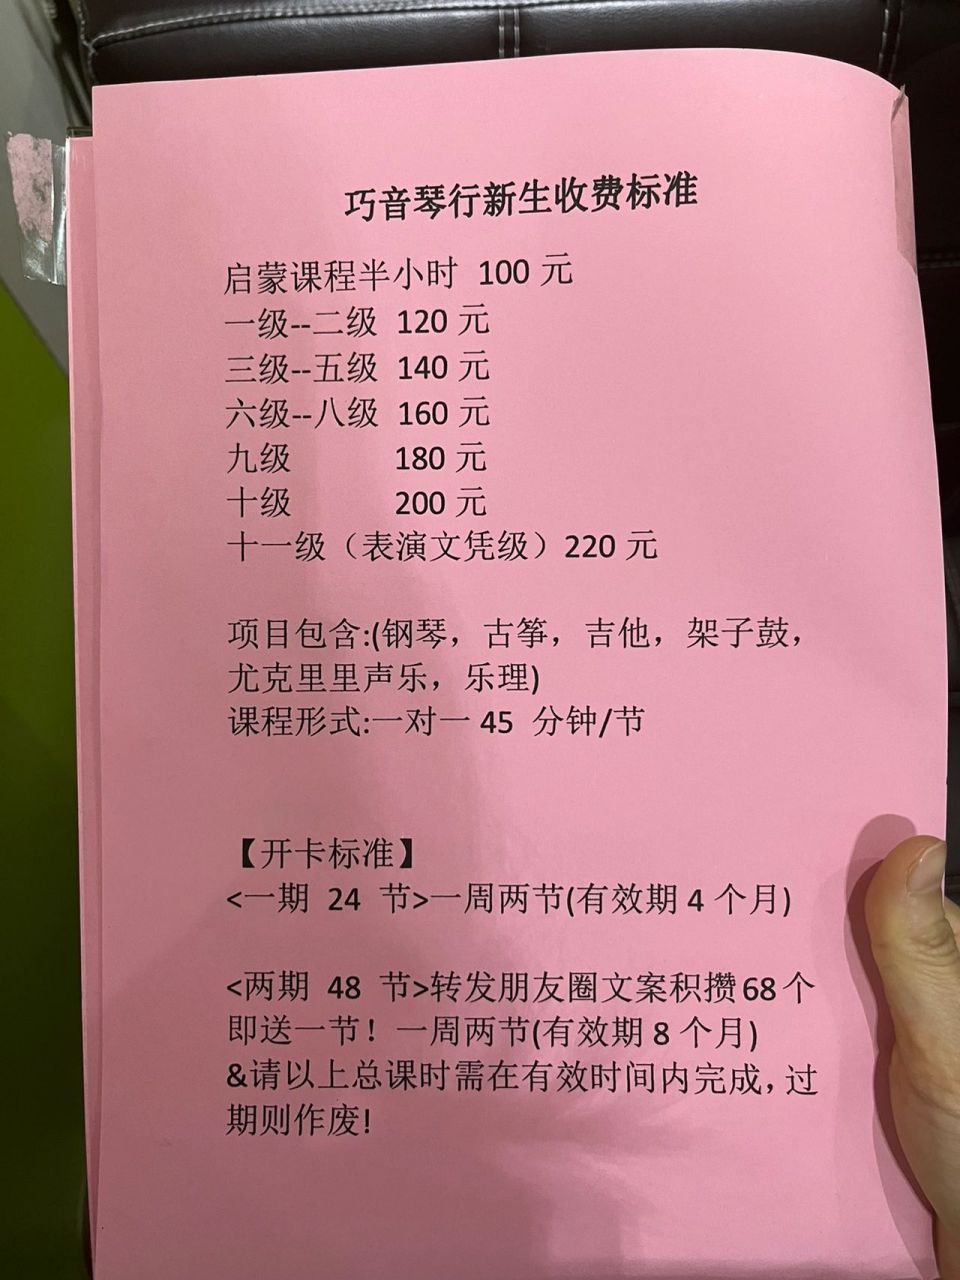 巧音琴行新生收费标准
启蒙课程半小时 100 元
一级--二级 120 元
三级--五级 140 元
六级--八级 160 元
九级 180 元
十级 200 元
十一级（表演文凭级）220 元
项目包含:(钢琴，古筝，吉他，架子鼓，
尤克里里声乐，乐理)
课程形式:一对一 45 分钟/节
【开卡标准】
<一期 24 节>一周两节(有效期 4 个月)
<两期 48 节>转发朋友圈文案积攒 68 个
即送一节！一周两节(有效期 8 个月)
&请以上总课时需在有效时间内完成，过
期则作废!